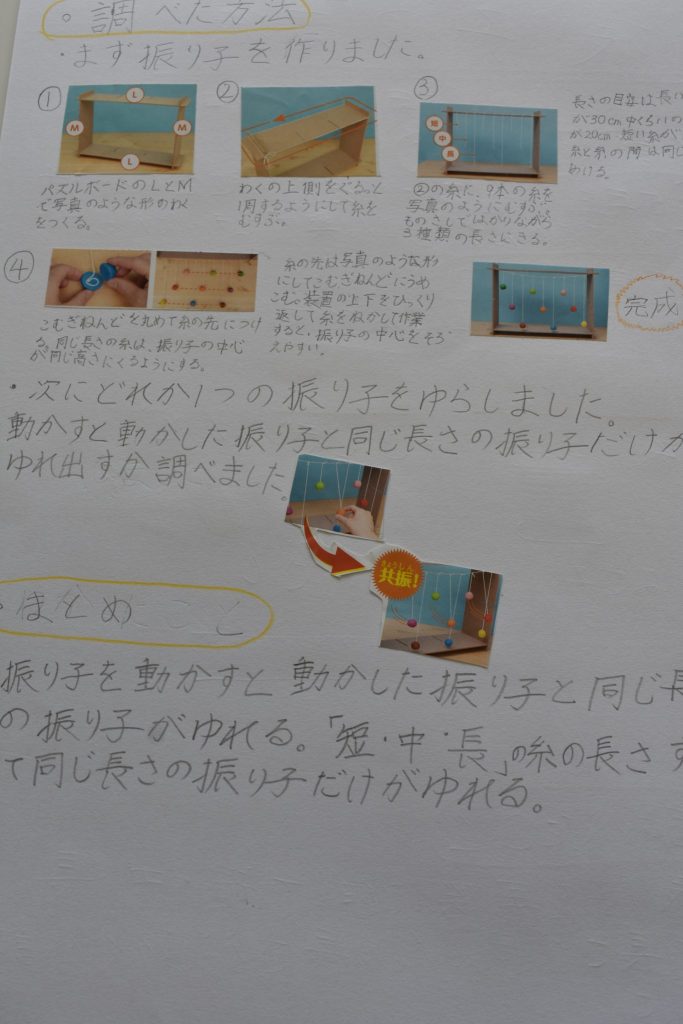 。調べた方法
・まず振り子を作りました。
①
L
M
M
L
パズルボードのLとM
で写真のような形のわく
をつくる。
②
わくの上側をぐるっと
1周するようにして糸を
むすぶ。
③
短
中
長
②の糸に、9本の糸を
写真のようにむすぶ。
ものさしではかりながら
3種類の長さにきる。
長さの目安は、長い
が30cm中くらいの
が20cm・短い糸が
糸と糸の間は同じ
あける。
④
6
こむぎねんどを丸めて糸の先につけ
る。同じ長さの糸は、振り子の中心
が同じ高さにくるようにする。
糸の先は写真のような形
にしてこむぎねんどにうめ
こむ。装置の上下をひっくり
返して糸をねかして作業
すると、振り子の中心をそろ
えやすい。
完成
・次にどれか1つの振り子をゆらしました。
動かすと動かした振り子と同じ長さの振り子だけが
ゆれ出すか調べました。
きょうしん
共振!
・まとめ
振り子を動かすと動かした振り子と同じ長
の振り子がゆれる。「短・中・長」の糸の長さす
て同じ長さの振り子だけがゆれる。